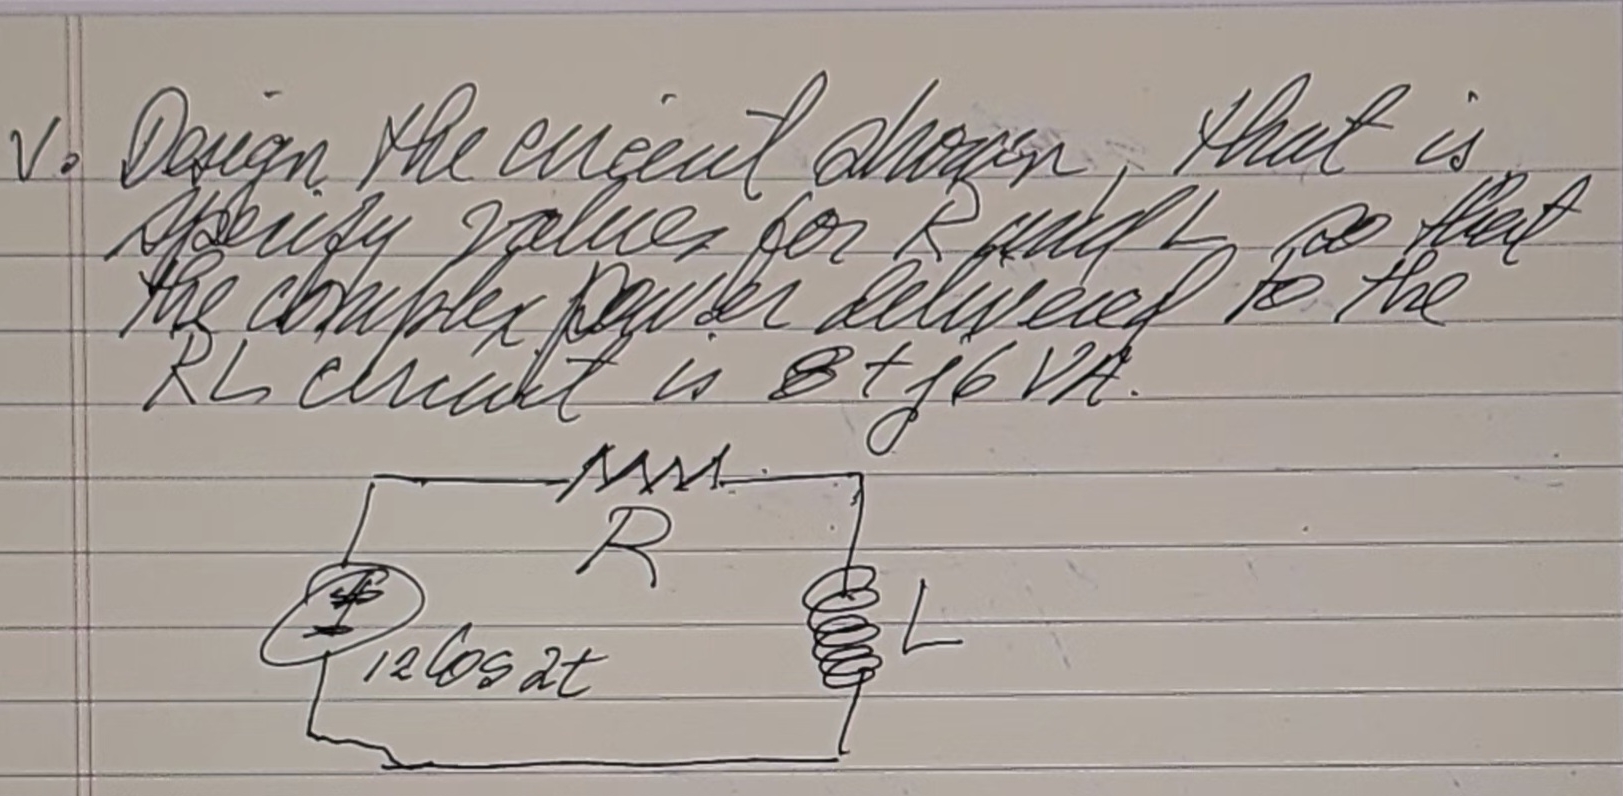 V. Design the circuit shown, that is
specify values for R and L so that
the complex power delivered to the
RL circuit is 8 + j6 VA.
R
+
-
12 Cos 2t
L